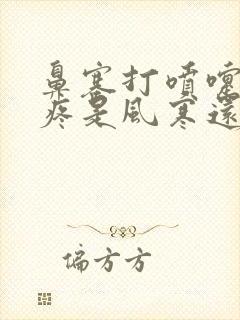 鼻塞打噴嚏
疼是風寒還
偏方方